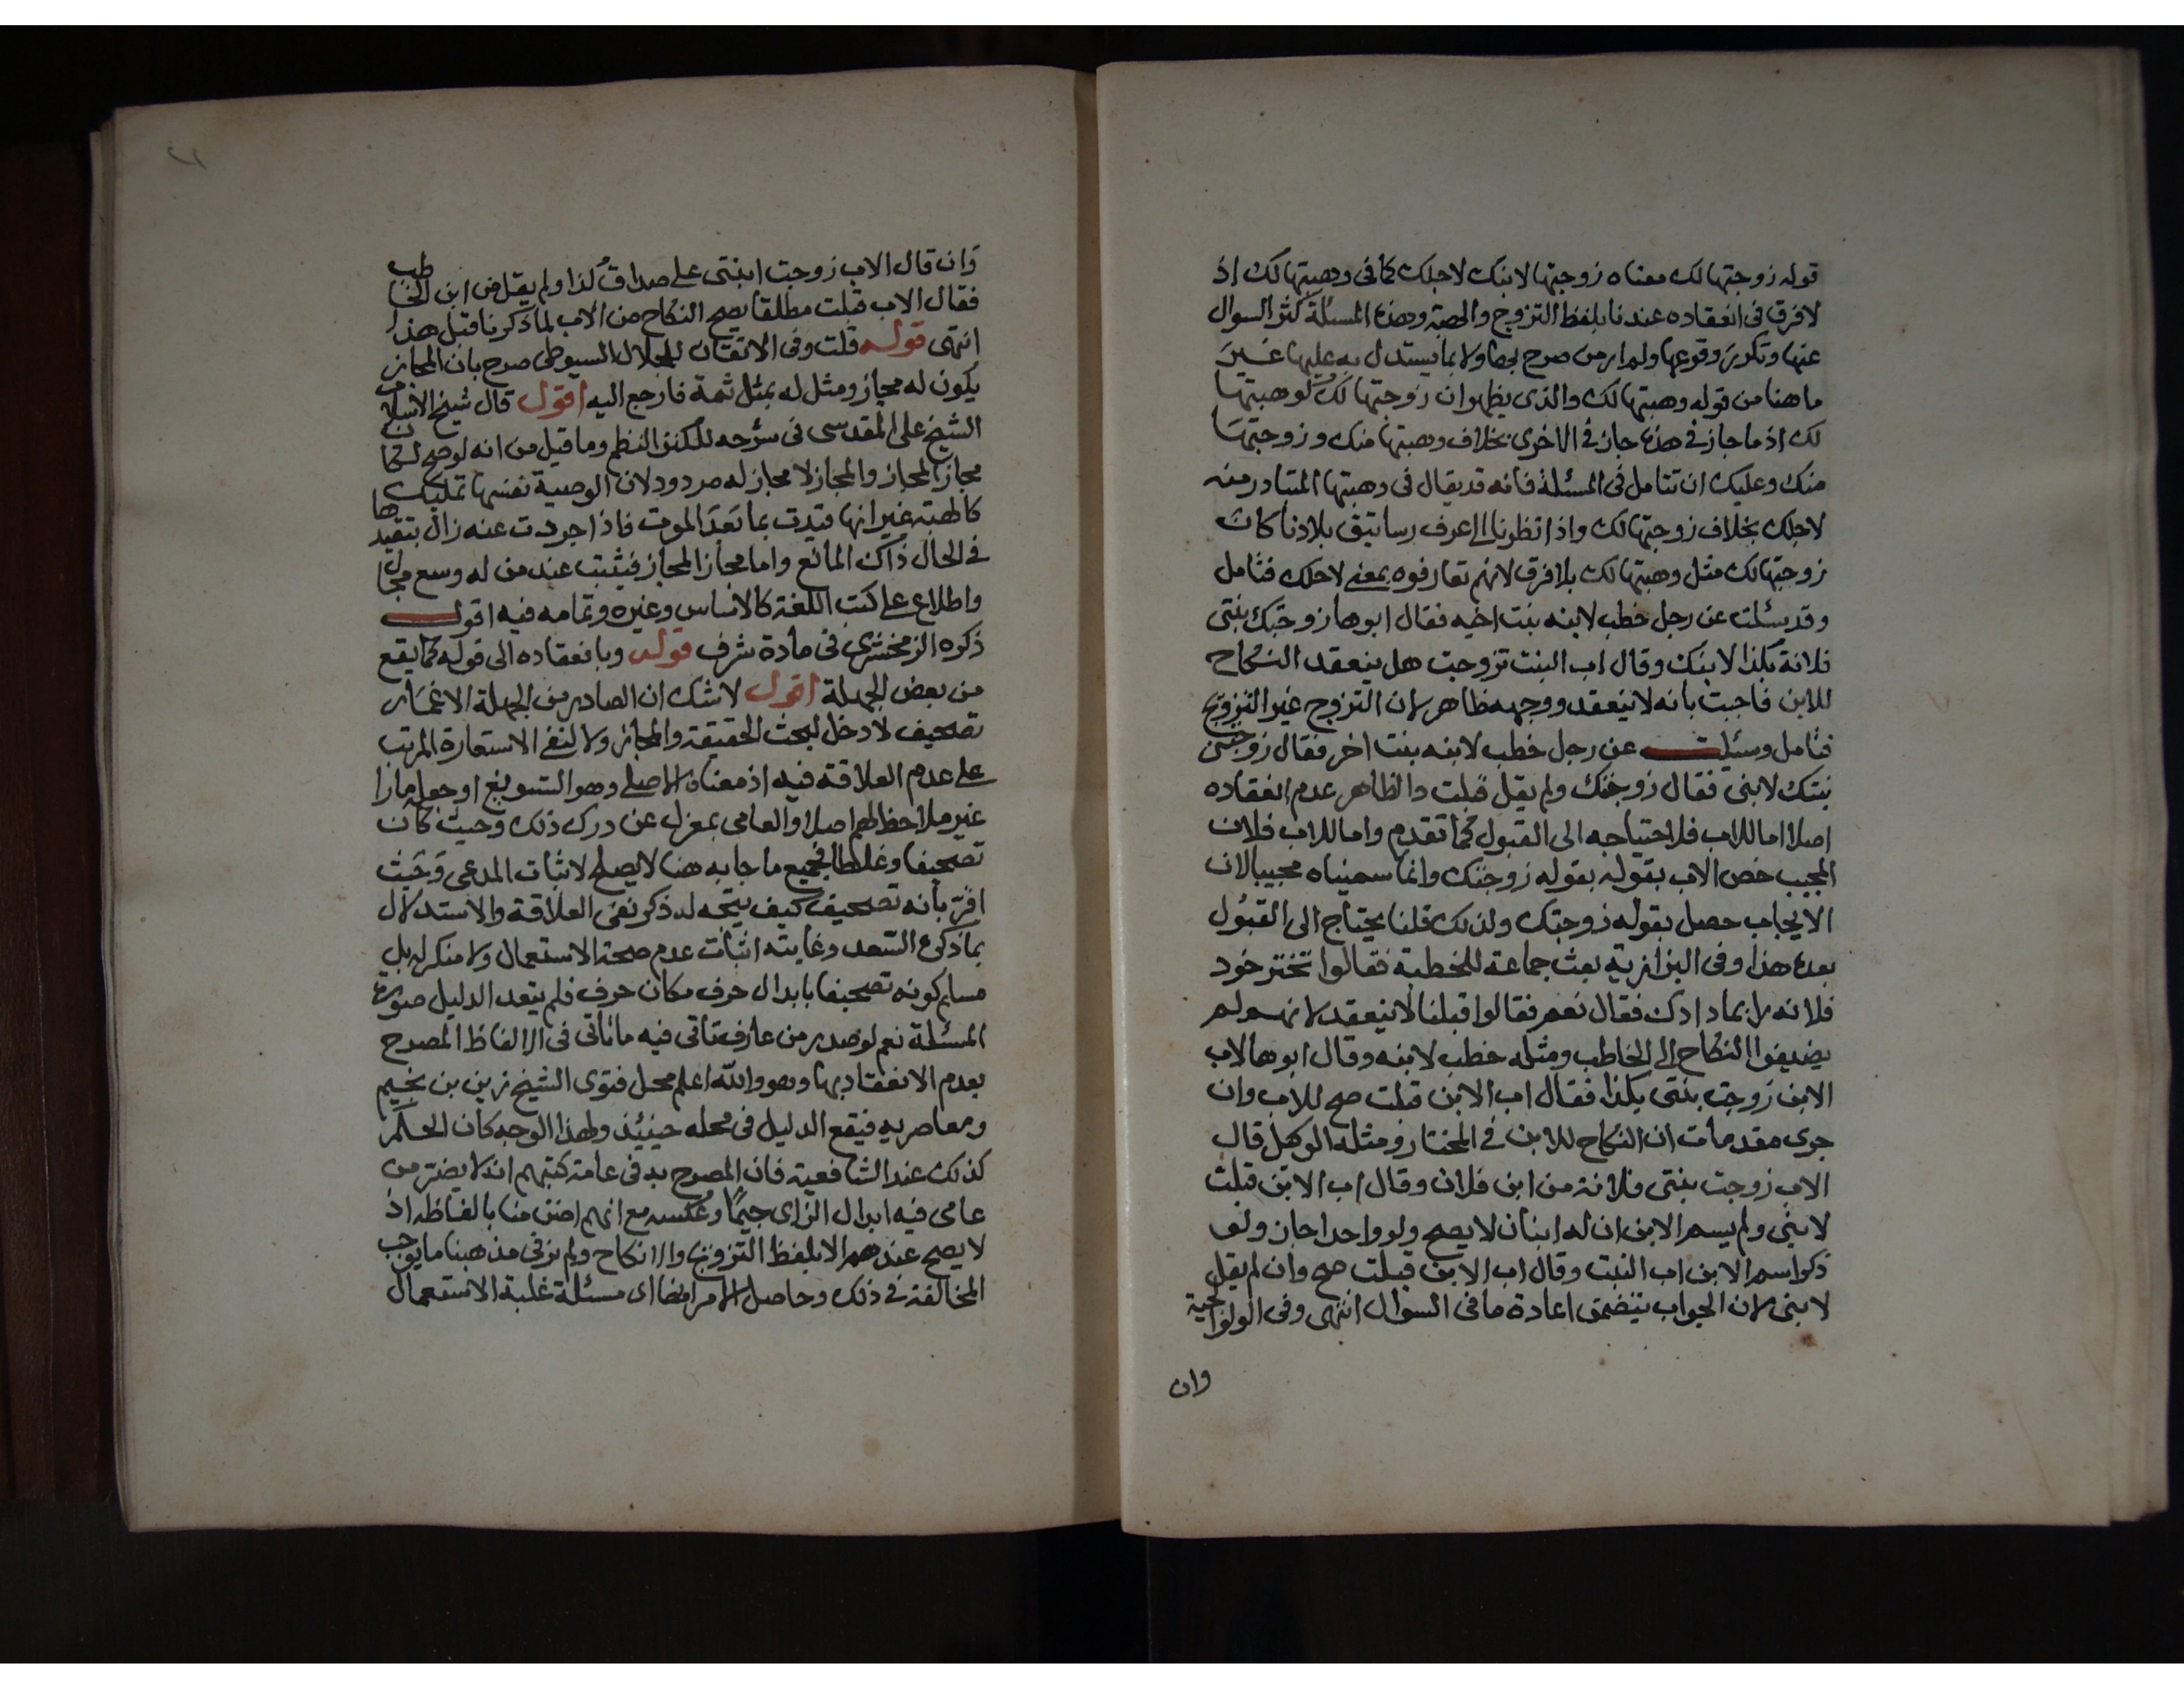 قوله زوجتها لك معناه زوجتها لابنك لاجلك كما فى وهبتها لك اذ
لا فرق فى انعقاده عندنا بلفظ التزوج والهبة وهذه المسئلة كثر السوال
عنها وتكرر وقوعها ولم ار من صرح بها ولا بما يستدل به عليها غير
ما هنا من قوله وهبتها لك والذى يظهر ان زوجتها لك كوهبتها
لك اذ ما جاز فى هذه جاز فى الاخرى بخلاف وهبتها منك وزوجتها
منك وعليك ان تتامل فى المسئلة فانه قد يقال فى وهبتها المتبادر منه
لاجلك بخلاف زوجتها لك واذا نظرنا الى اعرف رساتيق بلادنا كان
زوجتها لك مثل وهبتها لك بلا فرق لانهم تعارفوه بمعنى لاجلك فتامل
وقد سئلت عن رجل خطب لابنه بنت اخيه فقال ابوها زوجتك بنتى
فلانة بكذا لابنك وقال اب البنت تزوجت هل ينعقد النكاح
للابن فاجبت بانه لا ينعقد ووجهه ظاهر لان التزوج غير التزويج
فتامل وسئلت عن رجل خطب لابنه بنت اخر فقال زوجنى
بنتك لابنى فقال زوجتك ولم يقل قبلت والظاهر عدم انعقاده
اصلا اما للاب فلاحتياجه الى القبول كما تقدم واما للاب فلان
المجيب خص الاب بقوله بقوله زوجتك وانما سميناه مجيبا لان
الايجاب حصل بقوله زوجتك ولذلك قلنا يحتاج الى القبول
بعده هذا وفى البزازية بعث جماعة للخطبة فقالوا تختر خود
فلانه را بما دادك فقال نعم فقالوا قبلنا لا ينعقد لانهم لم
يضيفوا النكاح الى الخاطب ومثله خطب لابنه وقال ابوها لاب
الابن زوجت بنتى بكذا فقال اب الابن قبلت صح للاب وان
جرى مقدمات ان النكاح للابن فى المختار ومثله الوكيل قال
الاب زوجت بنتى فلانة من ابن فلان وقال اب الابن قبلت
لابنى ولم يسم الابن ان له ابنان لا يصح ولو واحدا جاز ولو
ذكر اسم الابن اب البنت وقال اب الابن قبلت صح وان لم يقل
لابنى لان الجواب يتضمن اعادة ما فى السوال انتهى وفى الولوالجية
وان
٢١
وان قال الاب زوجت ابنتى على صداق كذا ولم يقل من ابن الخاطب
فقال الاب قبلت مطلقا يصح النكاح من الاب لما ذكرنا قبل هذا
انتهى قوله قلت وفى الاتقان للجلال السيوطى صرح بان المجاز
يكون له مجاز ومثل له بمثل ثمة فارجع اليه اقول قال شيخ الاسلام
الشيخ على المقدسى فى شرحه للكنز النظم وما قيل من انه لو صح لكان
مجاز المجاز والمجاز لا مجاز له مردود لان الوصية نفسها تمليك
كالهبة غير انها قيدت بما بعد الموت فاذا جردت عنه زال بتقييدها
فى الحال ذاك المانع واما مجاز المجاز فيثبت عند من له وسع مجال
واطلاع على كتب اللغة كالاساس وغيره وتمامه فيه اقول
ذكره الزمخشرى فى مادة شرف قوله وبانعقاده الى قوله كما يقع
من بعض الجهلة اقول لا شك ان الصادر من الجهلة الاغمار
تصحيف لا دخل لبحث الحقيقة والمجاز ولا لنفى الاستعارة المرتب
على عدم العلاقة فيه اذ معناه الاصلى وهو التسويغ او جعله مارا
غير ملاحظ لهم اصلا والعامى بمعزل عن درك ذلك وحيث كان
تصحيفا وغلطا فجميع ما جا به هنا لا يصلح لاثبات المدعى وحيث
اقر بانه تصحيف كيف يتجه له ذكر نفى العلاقة والاستدلال
بما ذكره السعد وغايته اثبات عدم صحة الاستعمال ولا منكر له بل
مسلم كونه تصحيفا بابدال حرف مكان حرف فلم يتعد الدليل صورة
المسئلة نعم لو صدر من عارف تاتى فيه ما ياتى فى الالفاظ المصرح
بعدم الانعقاد بها وهو والله اعلم محل فتوى الشيخ زين بن نجيم
ومعاصريه فيقع الدليل فى محله حينئذ ولهذا الوجه كان الحكم
كذلك عند الشافعية فان المصرح به فى عامة كتبهم انه لا يضر من
عامى فيه ابدال الزاى جيما وعكسه مع انهم اضيق منا بالفاظه اذ
لا يصح عندهم الا بلفظ التزويج والانكاح ولم نر فى مذهبنا ما يوجب
المخالفة فى ذلك وحاصل الامر ايضا اى مسئلة غلبة الاستعمال